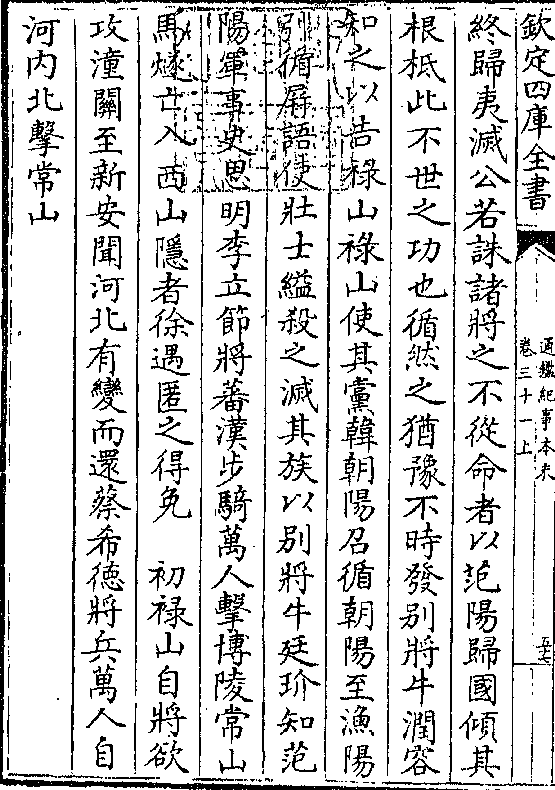 欽定四庫全書
通鑑紀事本末
卷三十一上
終歸夷滅公若誅諸將之不從命者以范陽歸國傾其
根柢此不世之功也循然之猶豫不時發别將牛潤容
知之以告祿山祿山使其黨韓朝陽召循朝陽至漁陽
引循屏語使壯士縊殺之滅其族以别將牛廷玠知范
陽軍事史思明李立節將蕃漢步騎萬人擊博陵常山
馬燧亡入西山隱者徐遇匿之得免　初禄山自將欲
攻潼關至新安聞河北有變而還蔡希德將兵萬人自
河内北擊常山